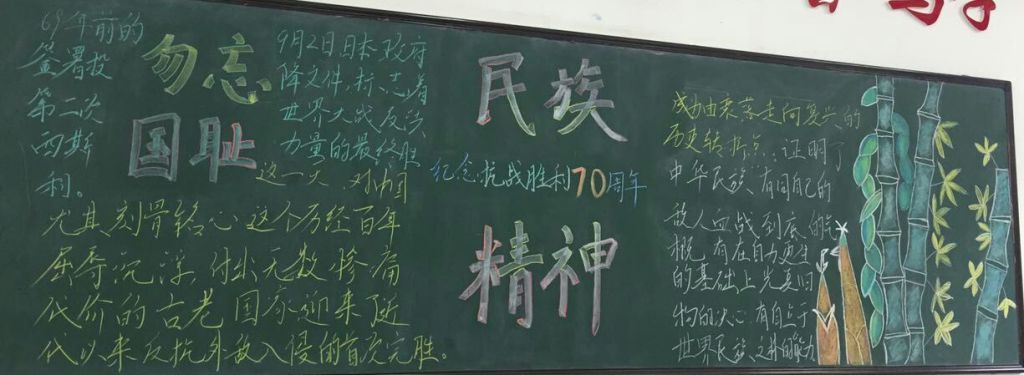 69年前的
签署投
第二次
西斯
利。
勿忘
国耻
9月2日日本政府
降文件,标志着
世界大战反法
力量的最终胜
这一天 对中国
尤其刻骨铭心这个历经百年
屈辱沉浮,付出无数惨痛
代价的古老国家迎来近
代以来反抗外敌入侵的首次完胜。
民族
纪念抗战胜利70周年
精神
成为由衰落走向复兴的
历史转折点,证明了
中华民族,有同自己的
敌人血战到底的气
概,有在自力更生
的基础上光复旧
物的决心,有自立于
世界民族之林的能力